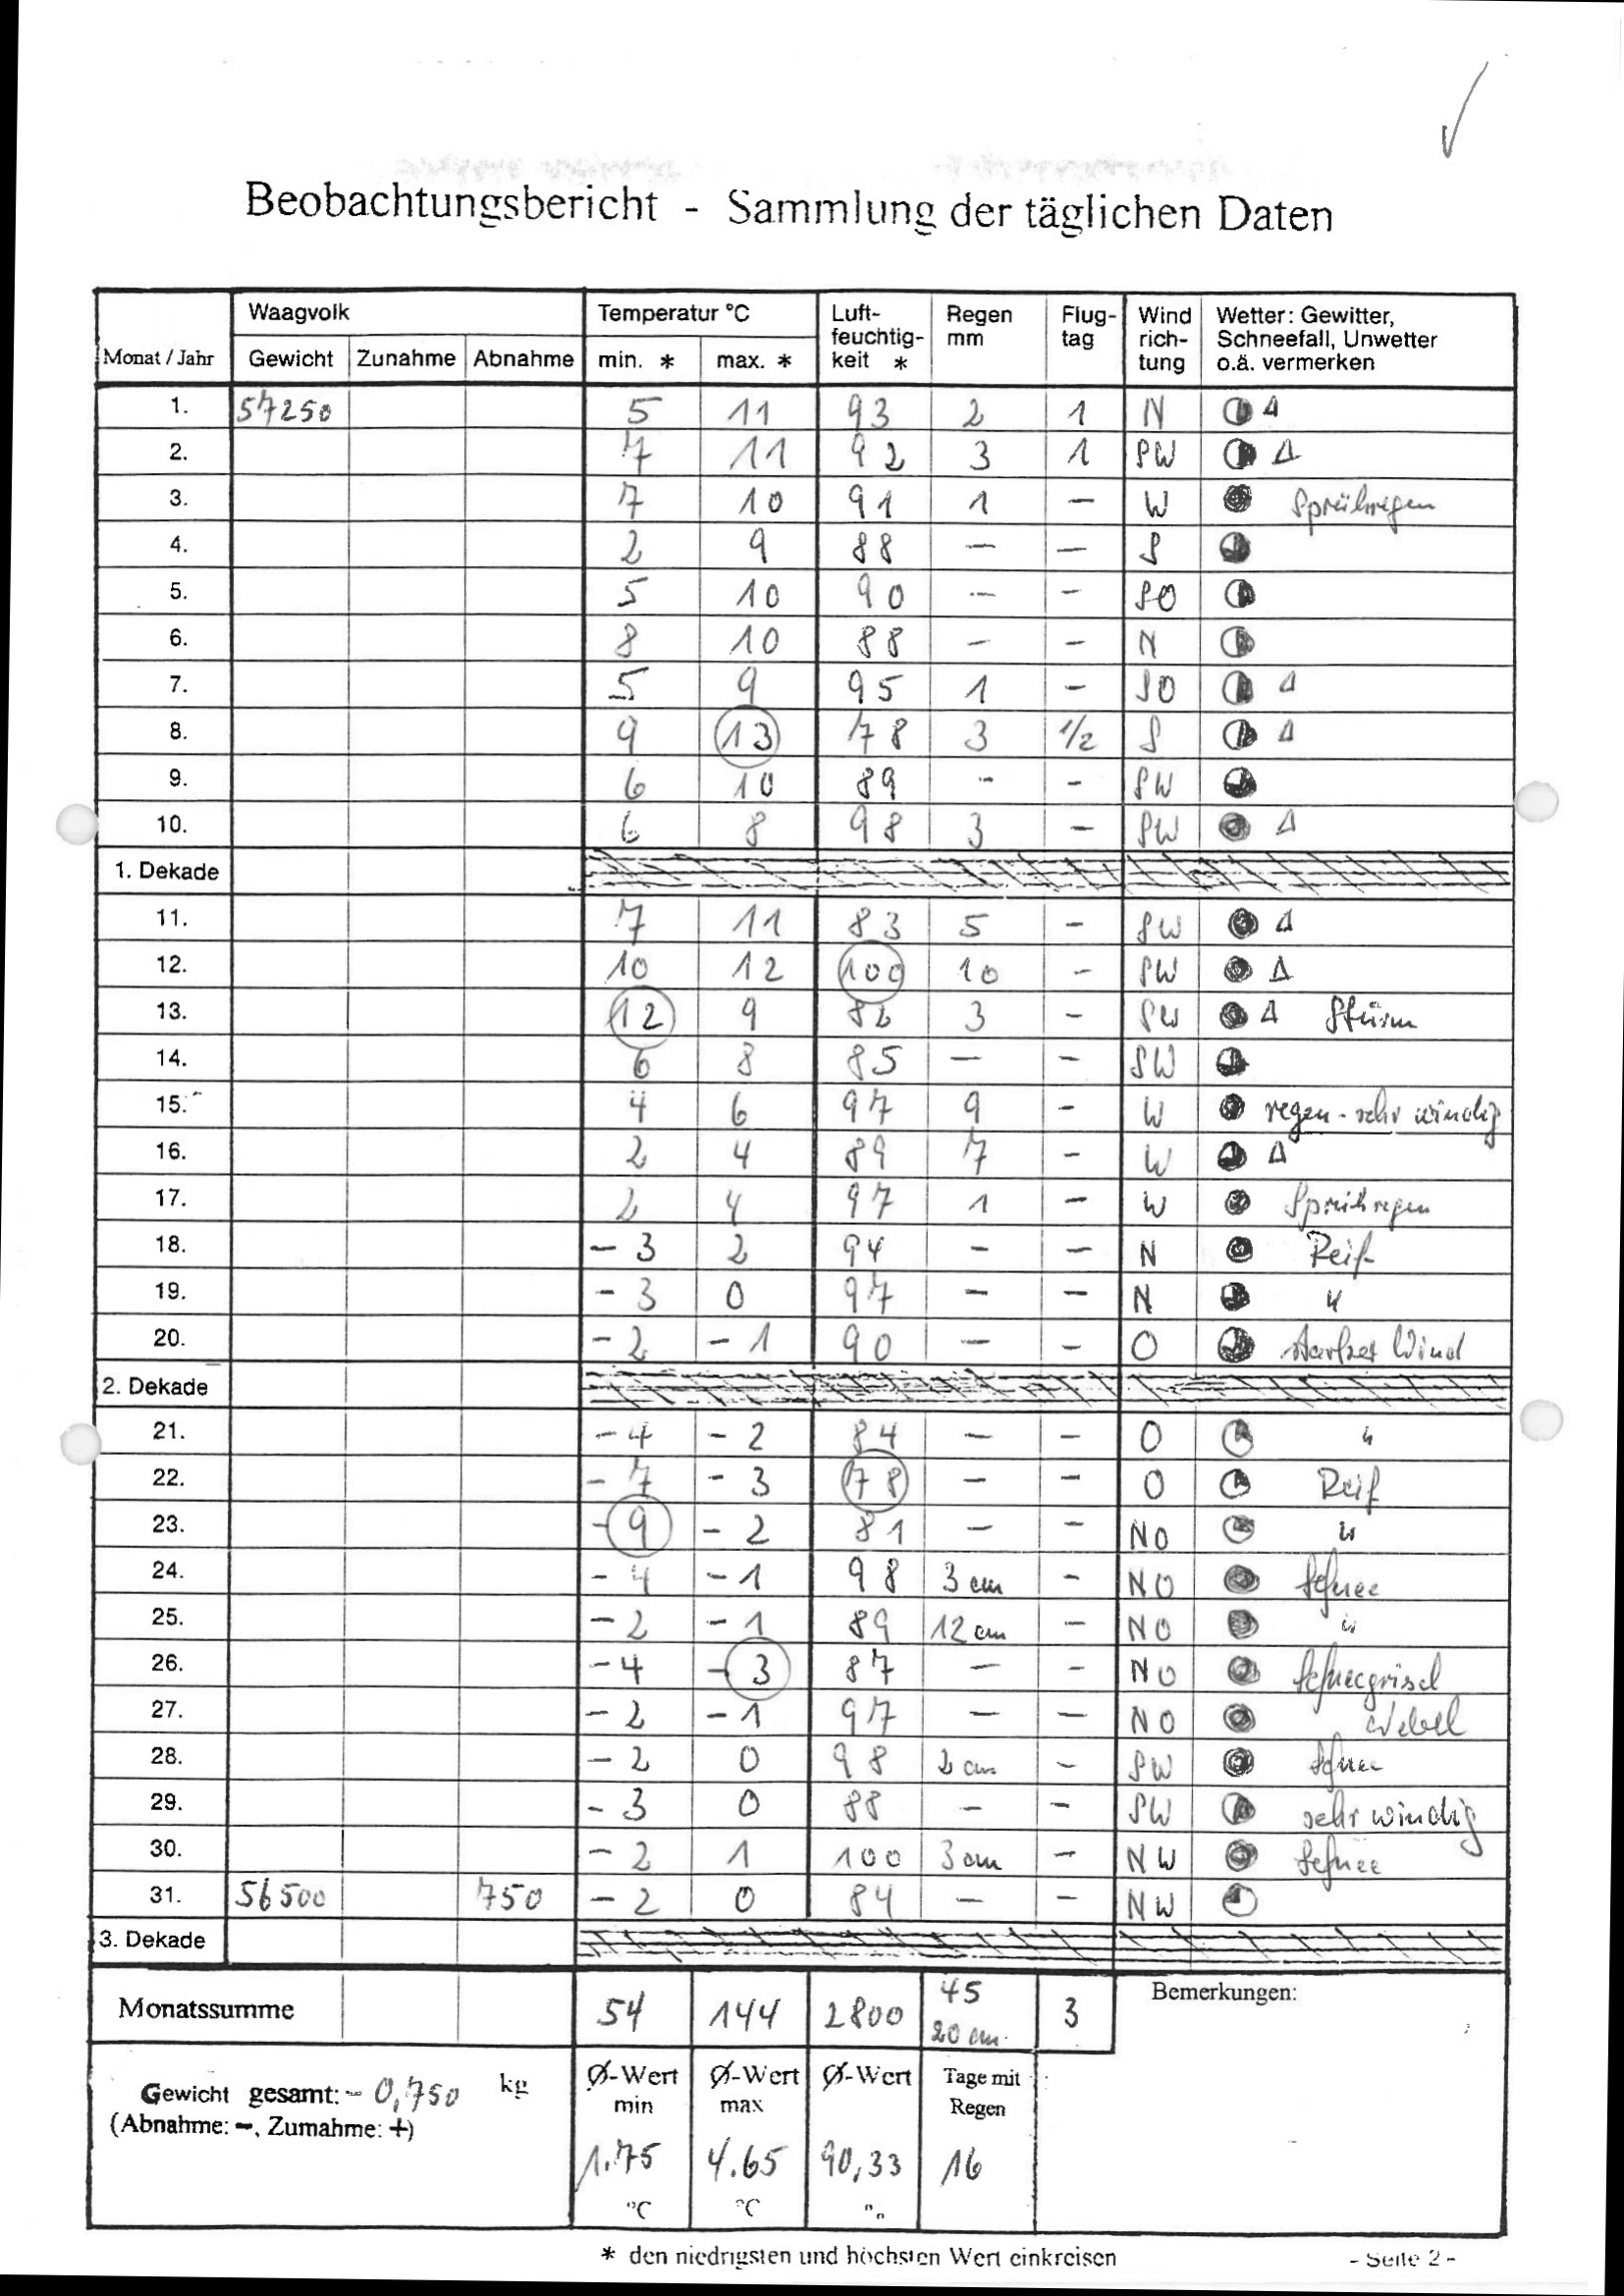 Beobachtungsbericht - Sammlung der täglichen Daten
Monat / Jahr Waagvolk Temperatur °C Luft-feuchtig-keit * Regen mm Flug-tag Wind rich-tung Wetter: Gewitter, Schneefall, Unwetter o.ä. vermerken
Gewicht Zunahme Abnahme min. * max. *
1. 57250 5 11 93 2 1 N
2. 7 11 92 3 1 SW
3. 7 10 91 1 – W Sprühregen
4. 2 9 88 – – S
5. 5 10 90 – – SO
6. 8 10 88 – – N
7. 5 9 95 1 – SO
8. 9 13 78 3 1/2 S
9. 6 10 89 – – SW
10. 6 8 98 3 – SW
1. Dekade
11. 7 11 83 5 – SW
12. 10 12 100 10 – SW
13. 12 9 82 3 – SW Stürm
14. 6 8 85 – – SW
15. 4 6 97 9 – W regen - sehr windig
16. 2 4 89 7 – W
17. 2 4 97 1 – W Sprühregen
18. – 3 2 94 – – N Reif
19. – 3 0 97 – – N "
20. – 2 – 1 90 – – O starker Wind
2. Dekade
21. – 4 – 2 84 – – O "
22. – 7 – 3 78 – – O Reif
23. – 9 – 2 81 – – NO "
24. – 4 – 1 98 3 cm – NO Schnee
25. – 2 – 1 89 12 cm – NO "
26. – 4 – 3 87 – – NO Schneegrisel
27. – 2 – 1 97 – – NO Nebel
28. – 2 0 98 2 cm – SW Schnee
29. – 3 0 88 – – SW sehr windig
30. – 2 1 100 3 cm – NW Schnee
31. 56500 750 – 2 0 84 – – NW
3. Dekade
Monatssumme 54 144 2800 45 20 cm. 3 Bemerkungen:
Gewicht gesamt: - 0,750 kg
(Abnahme: -, Zumahme: +)
Ø-Wert min Ø-Wert max Ø-Wert Tage mit Regen
1.75 4.65 90,33 16
°C °C
* den niedrigsten und höchsten Wert einkreisen
- Seite 2 -